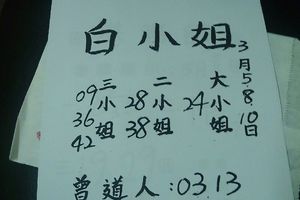 白小姐
3月5.8.10日
大小姐
24
二小姐
28
38
三小姐
09
36
42
曾道人:03.13